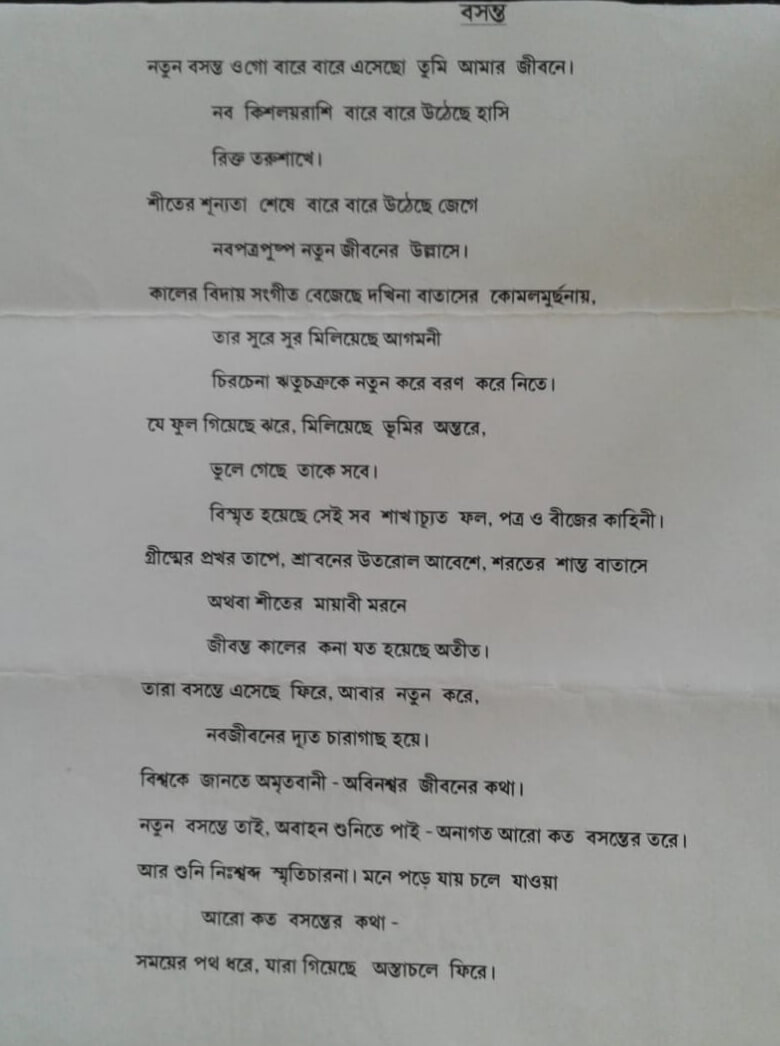 বসন্ত
নতুন বসন্ত ওগো বারে বারে এসেছো তুমি আমার জীবনে।
নব কিশলয়রাশি বারে বারে উঠেছে হাসি
রিক্ত তরুশাখে।
শীতের শূন্যতা শেষে বারে বারে উঠেছে জেগে
নবপত্রপুষ্প নতুন জীবনের উল্লাসে।
কালের বিদায় সংগীত বেজেছে দখিনা বাতাসের কোমলমূর্ছনায়,
তার সুরে সুর মিলিয়েছে আগমনী
চিরচেনা ঋতুচক্রকে নতুন করে বরণ করে নিতে।
যে ফুল গিয়েছে ঝরে, মিলিয়েছে ভূমির অন্তরে,
ভুলে গেছে তাকে সবে।
বিস্মৃত হয়েছে সেই সব শাখাচ্যুত ফল, পত্র ও বীজের কাহিনী।
গ্রীষ্মের প্রখর তাপে, শ্রাবনের উতরোল আবেশে, শরতের শান্ত বাতাসে
অথবা শীতের মায়াবী মরনে
জীবন্ত কালের কনা যত হয়েছে অতীত।
তারা বসন্তে এসেছে ফিরে, আবার নতুন করে,
নবজীবনের দ্যুত চারাগাছ হয়ে।
বিশ্বকে জানতে অমৃতবানী - অবিনশ্বর জীবনের কথা।
নতুন বসন্তে তাই, অবাহন শুনিতে পাই - অনাগত আরো কত বসন্তের তরে।
আর শুনি নিঃশব্দ স্মৃতিচারনা। মনে পড়ে যায় চলে যাওয়া
আরো কত বসন্তের কথা -
সময়ের পথ ধরে, যারা গিয়েছে অস্তাচলে ফিরে।